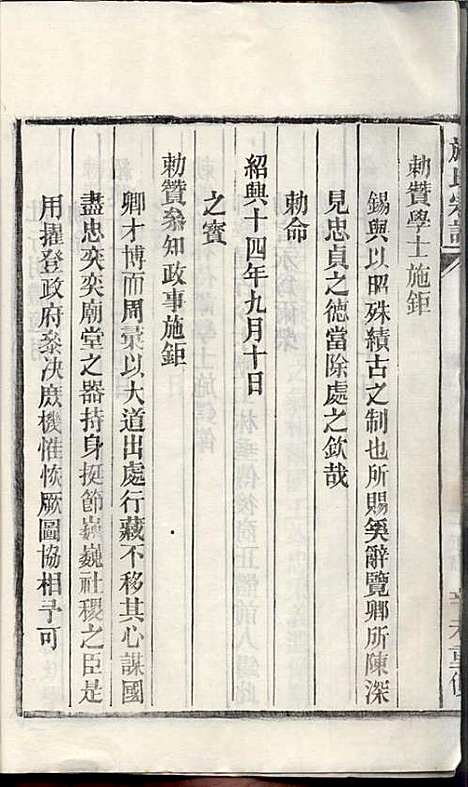 施氏宗譜
勅贊學士施鉅
錫與以昭殊績古之制也所賜奚辭覽卿所陳深
見忠貞之德當除處之欽哉
勅命
紹興十四年九月十日
之寳
勅贊叅知政事施鉅
卿才博而周彚以大道出處行藏不移其心謀國
盡忠奕奕廟堂之器持身挺節巍巍社稷之臣是
用擢登政府叅决庶機惟恢厥圖協相予可